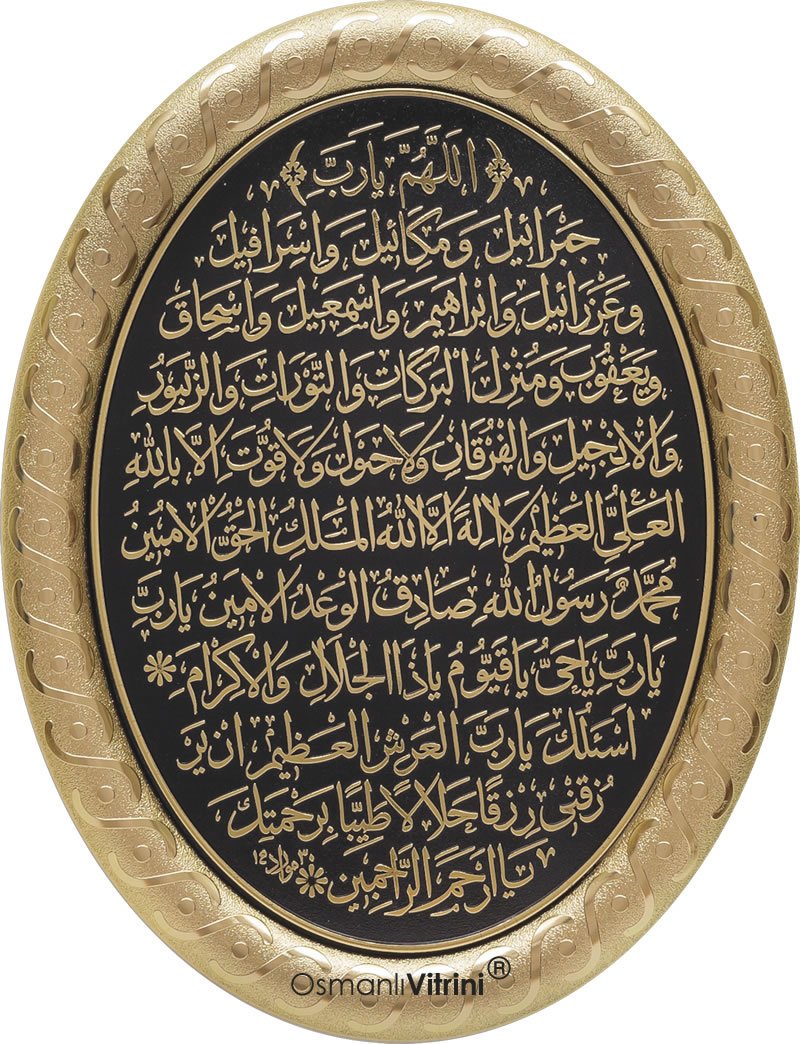 ﴿ اَللّٰهُمَّ يَارَبِّ ﴾
جَبْرَائِيلَ وَمِكَائِيلَ وَاِسْرَافِيلَ
وَعَزْرَائِيلَ وَاِبْرَاهِيمَ وَاِسْمٰعِيلَ وَاِسْحَاقَ
وَيَعْقُوبَ وَمُنْزِلَ الْبَرَكَاتِ وَالتَّوْرَاتِ وَالزَّبُورِ
وَالْاِنْجِيلِ وَالْفُرْقَانِ وَلَا حَوْلَ وَلَا قُوَّتَ اِلَّا بِاللّٰهِ
الْعَلِىِّ الْعَظِيمِ لَا اِلٰهَ اِلَّا اللّٰهُ الْمَلِكُ الْحَقُّ الْاَمُبِينُ
مُحَمَّدٌ رَسُولُ اللّٰهِ صَادِقُ الْوَعْدُ الْاَمِينُ يَارَبِّ
يَارَبِّ يَاحَىُّ يَاقَيُّومُ يَاذَا الْجَلَالِ وَالْاِكْرَامَ
اَسْئَلُكَ يَارَبَّ الْعَرْشِ الْعَظِيمِ اَنْ يَرْ
زُقَنِى رِزْقًا حَلَالًا طَيِّبًا بِرَحْمَتِكَ
يَا اَرْحَمَ الرَّاحِمِينَ
OsmanlıVitrini®